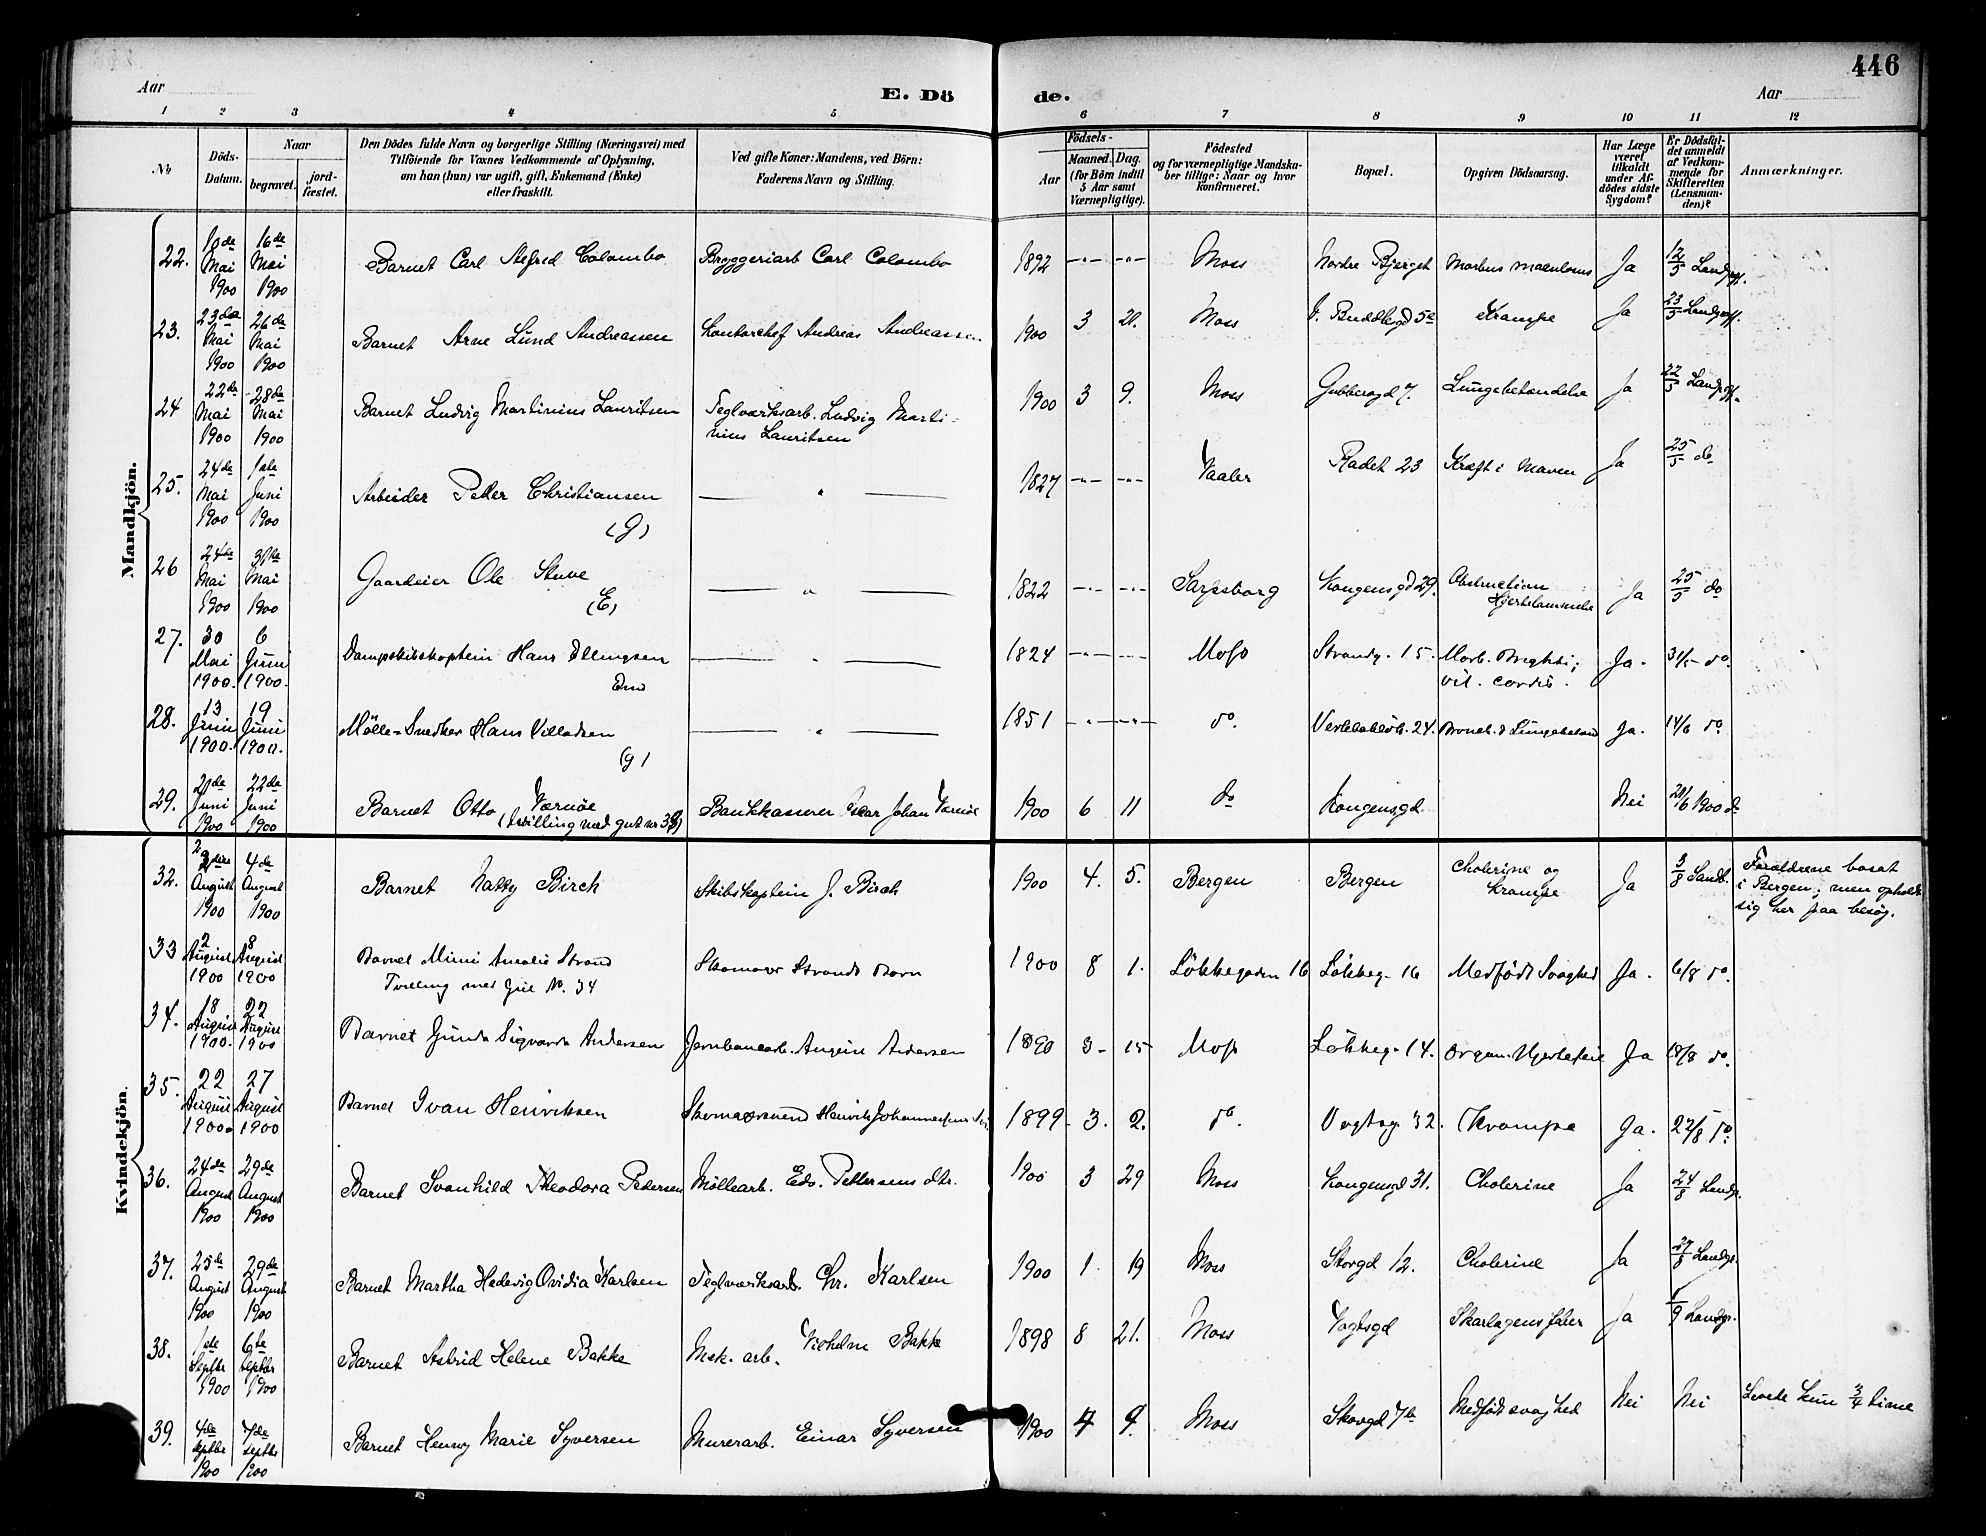 446
Aar
E. Dö
de.
Aar
1 2 3 4 5 6 7 8 9 10 11 12
No
Döds-
Datum.
Naar
begravet.
jord-
fæstet.
Den Dödes fulde Navn og borgerlige Stilling (Næringsvei) med
Tilföiende for Voxnes Vedkommende af Oplysning,
om han (hun) var ugift, gift, Enkemand (Enke)
eller fraskilt.
Ved gifte Koner: Mandens, ved Börn:
Faderens Navn og Stilling.
Födsels-
Aar
Maaned. Dag.
(for Börn indtil
5 Aar samt
Værnepligtige).
Födested
og for værnepligtige Mandska-
ber tillige: Naar og hvor
konfirmeret.
Bopæl.
Opgiven Dödsaarsag.
Har Læge
været
tilkaldt
under Af-
dödes sidste
Sygdom?
Er Dödsfal-
det anmeldt
af Vedkom-
mende for
Skifteretten
(Lensman-
den)?
Anmærkninger.
Mandkjön.
22. 10de Mai 1900 16de Mai 1900 Barnet Carl Alfred Colombo Bryggeriarb Carl Colombo 1892 -"- -"- Moss Nordre Bjerget Morbus maculosus Ja 12/5 Landpgf.
23. 23de Mai 1900 26de Mai 1900 Barnet Arne Lund Andreassen Kontorchef Andreas Andreassen 1900 3 21. Moss Krampe Ja 23/5 Landpgf.
24 22de Mai 1900 28de Mai 1900 Barnet Ludvig Martinius Lauritsen Teglværksarb. Ludvig Marti-
nius Lauritsen 1900 3 9. Moss Gubbegd 7. Lungebetændelse Ja 22/5 Landpgf.
25. 24de Mai 1900 1ste Juni 1900 Arbeider Peder Christiansen — " — 1827 -"- -"- Vaaler Radet 23 Kræft i Maven Ja 25/5 do
(G)
26 24de Mai 1900 31te Mai 1900 Gaardeier Ole Stube — " — 1822 -"- -"- Sarpsborg Kongensgd 29. Obstruction Ja 25/5 do
(E) Hjertelammelse
27. 30 Mai 1900. 6 Juni 1900. Dampskibskaptein Hans Ellingsen — " — 1824 -"- -"- Moss Strandg. 15. Morb. Brighti; Ja. 31/5 do.
Enk vit. cordis.
28. 13 Juni 1900. 19 Juni 1900. Mölle-Snedker Hans Villadsen — " — 1851 -"- -"- do. 24. Bronch. & Lungebetænd Ja. 14/6 do.
(g)
29. 21de Juni 1900 22de Juni 1900 Barnet Otto Værnöe Bankkasserer Johan Værnöe 1900 6 11 do Kongensgd. Nei 21/6 1900 do
(tvilling med gut nr 39)
Kvindekjön.
32. August 1900 4de August 1900 Barnet Natty Birch Skibskaptein J. Birch 1900 4. 5. Bergen Bergen Cholerine og Krampe Ja 3/8 Landp. Foraldrene bosat
i Bergen; men opholdt
sig her paa besög.
33 2 August 1900 8 August 1900 Barnet Mimi Amalie Strand Skomager Strands Barn 1900 8 1. Lökkegaden 16 Lökkeg. 16 Medfödt Svaghed Ja. 6/8 do.
Tvilling med Gut No. 34
34. 18 August 1900. 22 August 1900 Barnet Gunda Sigvarda Andersen Jernbanearb. August Andersen 1890 3- 15 Moss Lökkeg. 14. Organ. Hjertefeil Ja 18/8 do.
35. 22 August 1900. 27 August 1900 Barnet Svan Henriksen Skomagersvend Henrik Johannessens 1899. 3. 2. do. Vogtsg. 32. Krampe Ja. 22/8 do.
36. 24de August 1900 29de August 1900 Barnet Svanhild Theodora Pedersen Möllearb. Edv. Pettersens dtr. 1900 3 29 Moss Kongensgd 31. Cholerine Ja 24/8 Landp.
37. 25de August 1900 29de August 1900 Barnet Martha Hedevig Ovidia Karlsen Teglværksarb. Chr. Karlsen 1900 1 19 Moss Storgd 12. Cholerine Ja 27/8 Landp.
38. 1ste Septbr 1900 6te Septbr 1900 Barnet Astrid Helene Bakke Mek. arb. Vilhelm Bakke 1898 8 21. Moss Vogtsgd Skarlagensfeber Ja 1/9 Landp.
39. 4de Septbr 1900 7de Septbr 1900 Barnet Henny Marie Syversen Murerarb. Einar Syversen 1900 Moss Skovgd 7b Medfödt svaghed Nei Nei Levede kun 3/4 time